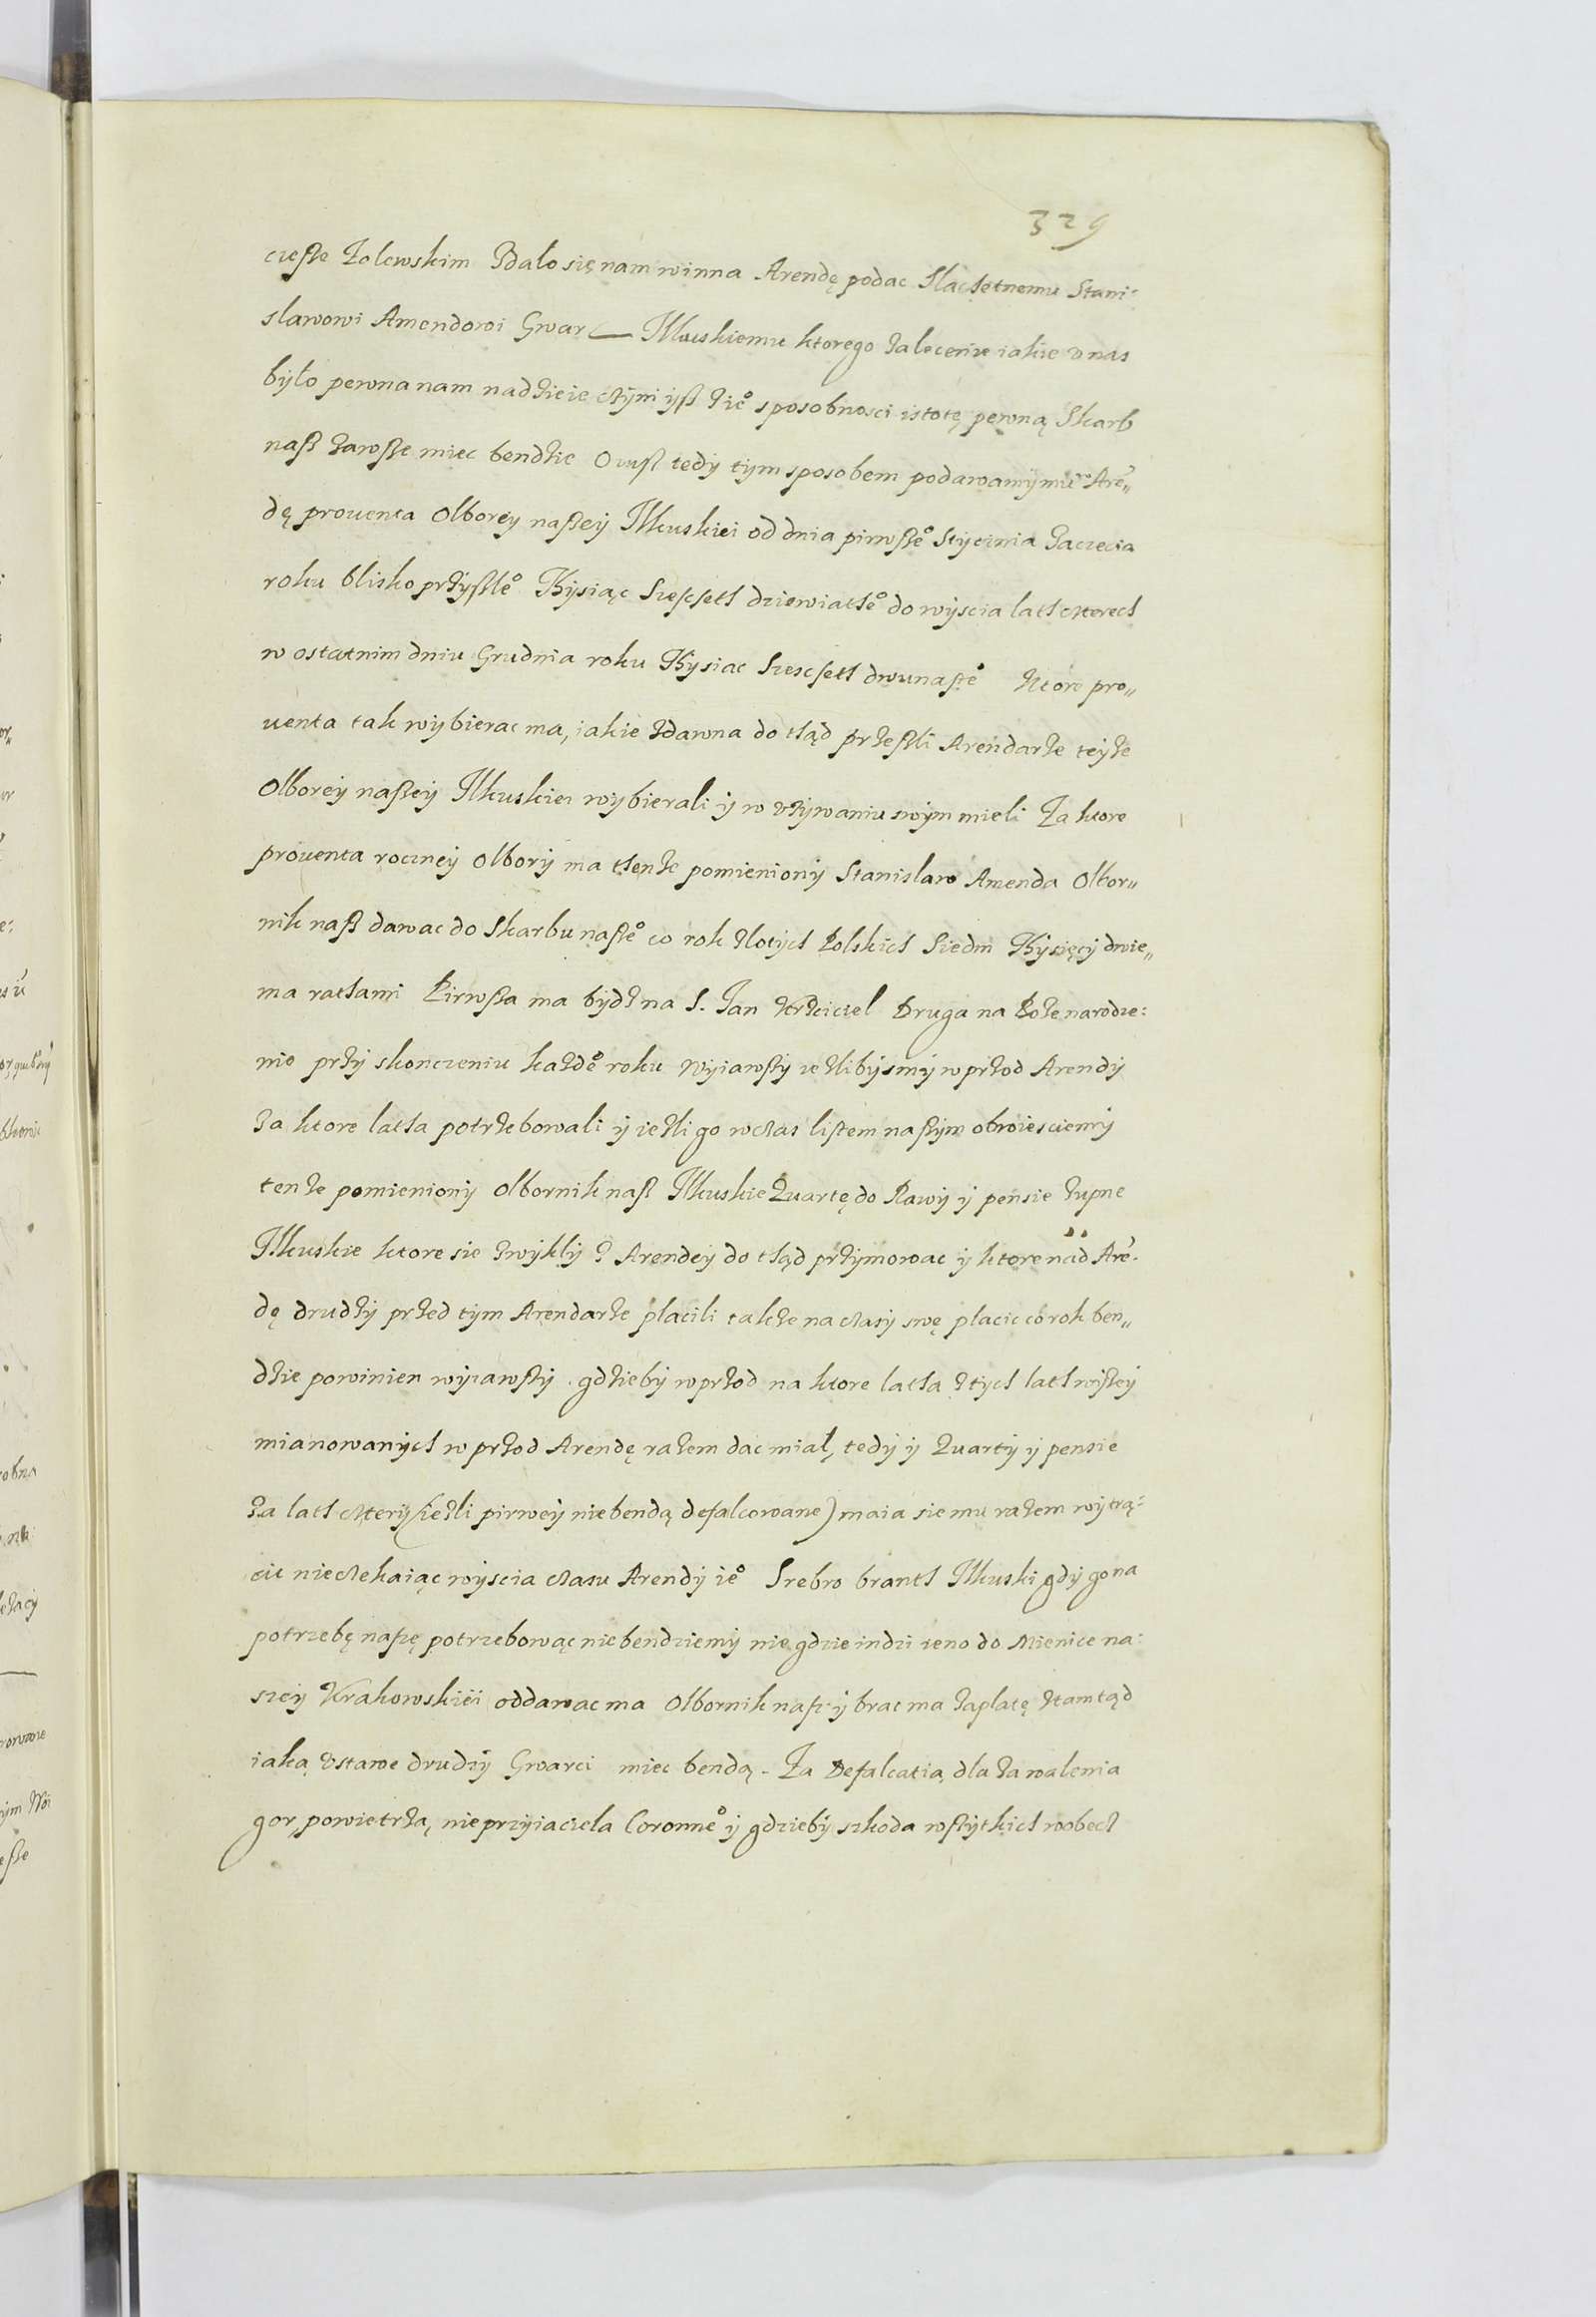 329
czesse Zolewskim Zdało się nam winna Arendę podac Slachetnemu Stani:
sławowi Amendowi Gwar Ilkuskiemu ktorego zalecenie iakie v nas
było pewna nam nadzieie czyni ysz z ie° sposobnosci istotę pewną Skarb
nasz zawsze miec bendzie Owusz tedy tym sposobem podawamy mu Arē„
dę prouenta Olborey naszey Ilkuskiei od dnia pirwsze° Stycznia zaczecia
roku blisko przyszłe° Tysiąc Szescseth dziewiathe° do wyscia lath czterech
w ostatnim dniu Grudnia roku Tysiac Szescseth dwunaste° Ktore pro„
uenta tak wybierac ma, iakie zdawna do thąd przeszli Arendarze teyze
Olborey naszey Ilkuskiei wybierali y w vzywaniu swym mieli Za ktore
prouenta roczney Olbory ma thenze pomieniony Stanislaw Amenda Olbor„
nik nasz dawac do Skarbu nasze° co rok złotych Polskich Siedm Tysięcy dwie„
ma rathami Pirwsza ma bydz na S. Jan Krzciciel Druga na Bozenarodze:
nie przy skonczeniu kazde° roku wyiawszy iezlibysmy wprzod Arendy
za ktore latha potrzebowali y iezli go wczas listem naszym obwiesciemy
tenze pomieniony Olbornik nasz Ilkuskie Quartę do Rawy y pensie zupne
Ilkuskie ktore sie zwykły z Arendey do thąd przymowac y ktore nad Arē.
dę drudzy przed tym Arendarze płacili takze na czasy swę płacic co rok ben„
dzie powinien wyiawszy gdzieby wprzod na ktore latha z tych lath wyszey
mianowanych w przod Arendę razem dac miał, tedy y Quarty y pensie
za lath cztery (iezli pirwey niebendą defalcowane) maia sie mu razem wytrą:
cic nieczekaiąc wyscia czasu Arendy ie° Srebro branth Ilkuski gdy go na
potrzebę naszę potrzebowąc niebendziemy nie gdzie indzi ieno do Mienice na:
szey Krakowskiei oddawac ma Olbornik nasz y brac ma zapłatę ztamtąd
iaką vstawe drudzy Gwarci miec bendą. Za Defalcatią dla zawalenia
gor, powietrza, nieprzyiaciela Coronne° y gdzieby szkoda wszytkich wobech